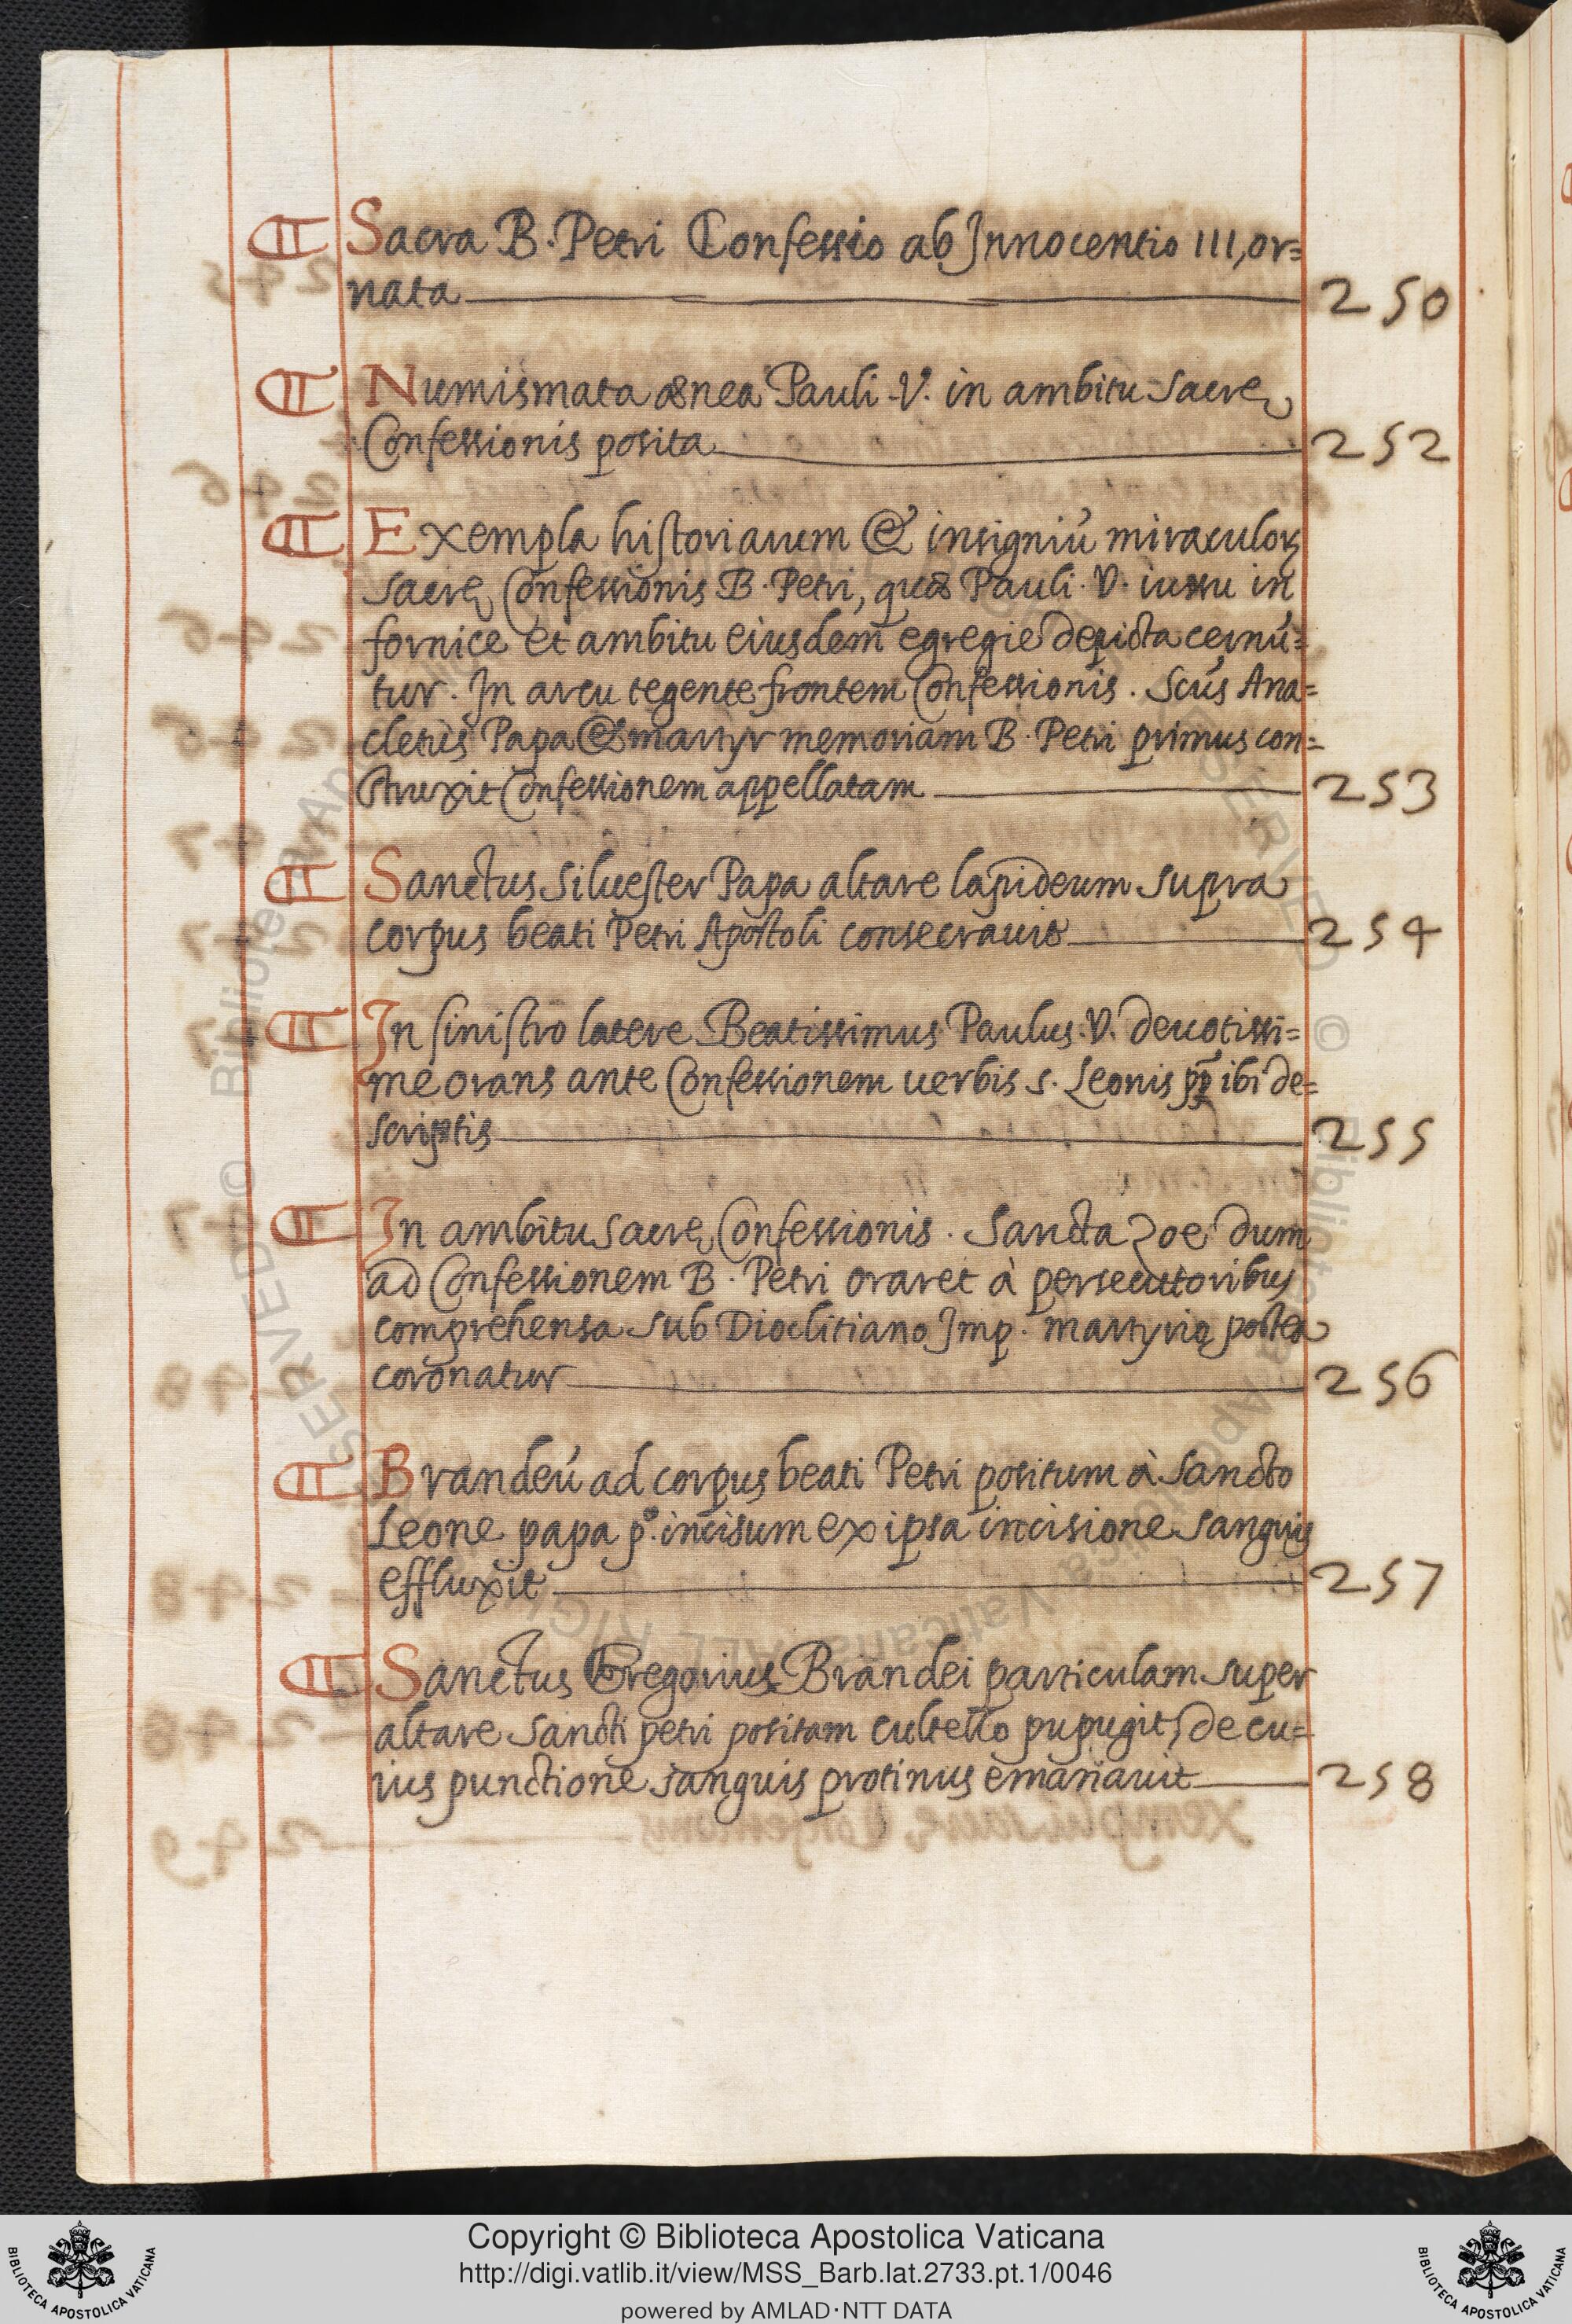 ¶ Sacra B. Petri Confessio ab Innocentio III, or=
nata 250
¶ Numismata ænea Pauli .V. in ambitu sacrę
Confessionis posita 252
¶ Exempla historiarum & insigniū miraculoꝝ
sacrę Confessionis B. Petri, quæ Pauli .V. iussu in
fornice et ambitu eiusdem egregie depicta cernū=
tur. In arcu tegente frontem Confessionis. Scūs Ana=
cletus Papa & martyr memoriam B. Petri primus con=
struxit Confessionem appellatam 253
¶ Sanctus Siluester Papa altare lapideum supra
corpus beati Petri Apostoli consecrauit 254
¶ In sinistro latere Beatissimus Paulus .V. deuotissi=
me orans ante Confessionem uerbis s. Leonis pp̄ ibi de=
scriptis 255
¶ In ambitu sacrę Confessionis. Sancta Zoe dum
ad Confessionem B. Petri oraret à persecutoribus
comprehensa sub Dioclitiano Imp. martyrio postea
coronatur 256
¶ Brandeū ad corpus beati Petri positum à sancto
Leone papa p.º incisum ex ipsa incisione sanguis
effluxit 257
¶ Sanctus Gregorius Brandei particulam super
altare sancti petri positam cultello pupugit, de cu=
ius punctione sanguis protinus emanauit 258
Copyright © Biblioteca Apostolica Vaticana
http://digi.vatlib.it/view/MSS_Barb.lat.2733.pt.1/0046
powered by AMLAD·NTT DATA
BIBLIOTECA APOSTOLICA VATICANA
BIBLIOTECA APOSTOLICA VATICANA